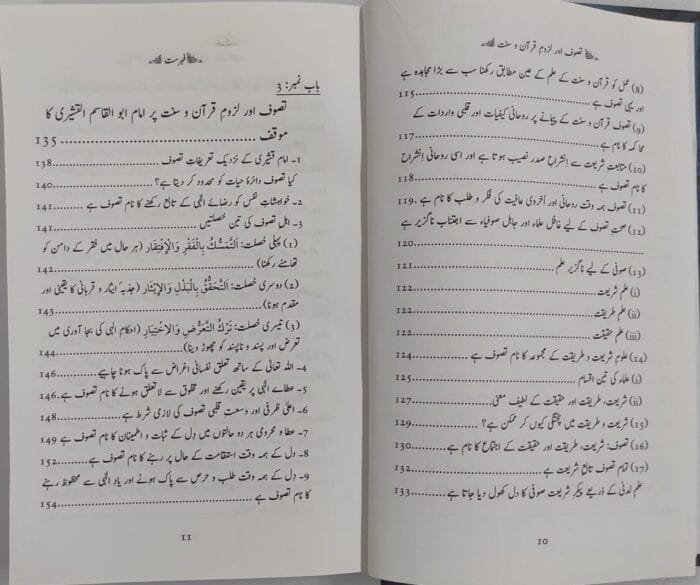 تصوف اور لزومِ قرآن و سنت
(8) عمل کو قرآن و سنت کے علم کے عین مطابق رکھنا سب سے بڑا مجاہدہ ہے
اور یہی تصوف ہے ........ 115
(9) تصوف قرآن و سنت کے پیمانے پر روحانی کیفیات اور قلبی واردات کے
محاکمہ کا نام ہے ........ 117
(10) متابعتِ شریعت سے انشراحِ صدر نصیب ہوتا ہے اور اسی روحانی انشراح
کا نام تصوف ہے ........ 118
(11) تصوف ہمہ وقت روحانی اور اُخروی عافیت کی فکر و طلب کا نام ہے .119
(12) صحتِ تصوف کے لیے غافل علماء اور جاہل صوفیاء سے اجتناب ناگزیر ہے
........ 120
(13) صوفی کے لیے ناگزیر علم ........ 121
(i) علمِ شریعت ........ 122
(ii) علمِ طریقت ........ 122
(iii) علمِ حقیقت ........ 122
(14) علومِ شریعت و طریقت کے مجموعہ کا نام تصوف ہے ........ 124
(i) علماء کی تین اقسام ........ 125
(ii) شریعت، طریقت اور حقیقت کے لطیف معنی ........ 127
(15) شریعت و طریقت میں پختگی کیوں کر ممکن ہے؟ ........ 129
(16) تصوف: شریعت، طریقت اور حقیقت کے اجتماع کا نام ہے ........ 130
(17) تمام تصوف تابع شریعت ہے ........ 132
علم لدنی کے ذریعے پیکرِ شریعت صوفی کا دل کھول دیا جاتا ہے ........ 133
10
فہرست
باب نمبر: 3
تصوف اور لزومِ قرآن و سنت پر امام ابو القاسم القشیری کا
موقف ........ 135
1- امام قشیری کے نزدیک تعریفاتِ تصوف ........ 138
کیا تصوف دائرۂ حیات کو محدود کر دیتا ہے؟ ........ 140
2- خواہشاتِ نفس کو رضائے الٰہی کے تابع رکھنے کا نام تصوف ہے ........ 141
3- اہلِ تصوف کی تین خصلتیں ........ 141
(1) پہلی خصلت: اَلتَّمَسُّكُ بِالْفَقْرِ وَالْاِفْتِقَارِ (ہر حال میں فقر کے دامن کو
تھامے رکھنا) ........ 142
(2) دوسری خصلت: اَلتَّحَقُّقُ بِالْبَذْلِ وَالْاِيْثَارِ (جذبۂ ایثار و قربانی کا یقینی اور
مقدم ہونا) ........ 143
(3) تیسری خصلت: تَرْكُ التَّعَرُّضِ وَالْاِخْتِيَارِ (احکامِ الٰہی کی بجا آوری میں
تعرض اور پسند و ناپسند کو چھوڑ دینا) ........ 144
4- اللہ تعالیٰ کے ساتھ تعلق نفسانی اغراض سے پاک ہونا چاہیے ........ 146
5- عطائے الٰہی پر یقین رکھنے اور مخلوق سے لاتعلق ہونے کا نام تصوف ہے .146
6- اعلیٰ ظرفی اور وسعتِ قلبی تصوف کی لازمی شرط ہے ........ 148
7- عطا و محرومی ہر دو حالتوں میں دل کے ثبات و اطمینان کا نام تصوف ہے 149
8- دل کے ہمہ وقت استقامت کے حال پر رہنے کا نام تصوف ہے ........ 152
9- دل کے ہمہ وقت طلب و حرص سے پاک ہونے اور یادِ الٰہی سے محظوظ رہنے
کا نام تصوف ہے ........ 154
11